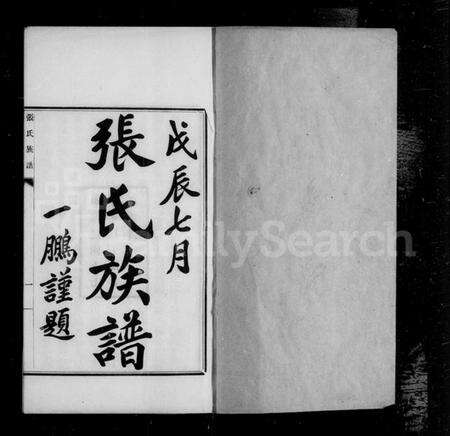 戊辰七月
張氏族譜
一鵬謹題
張氏族譜
一
FamilySearch